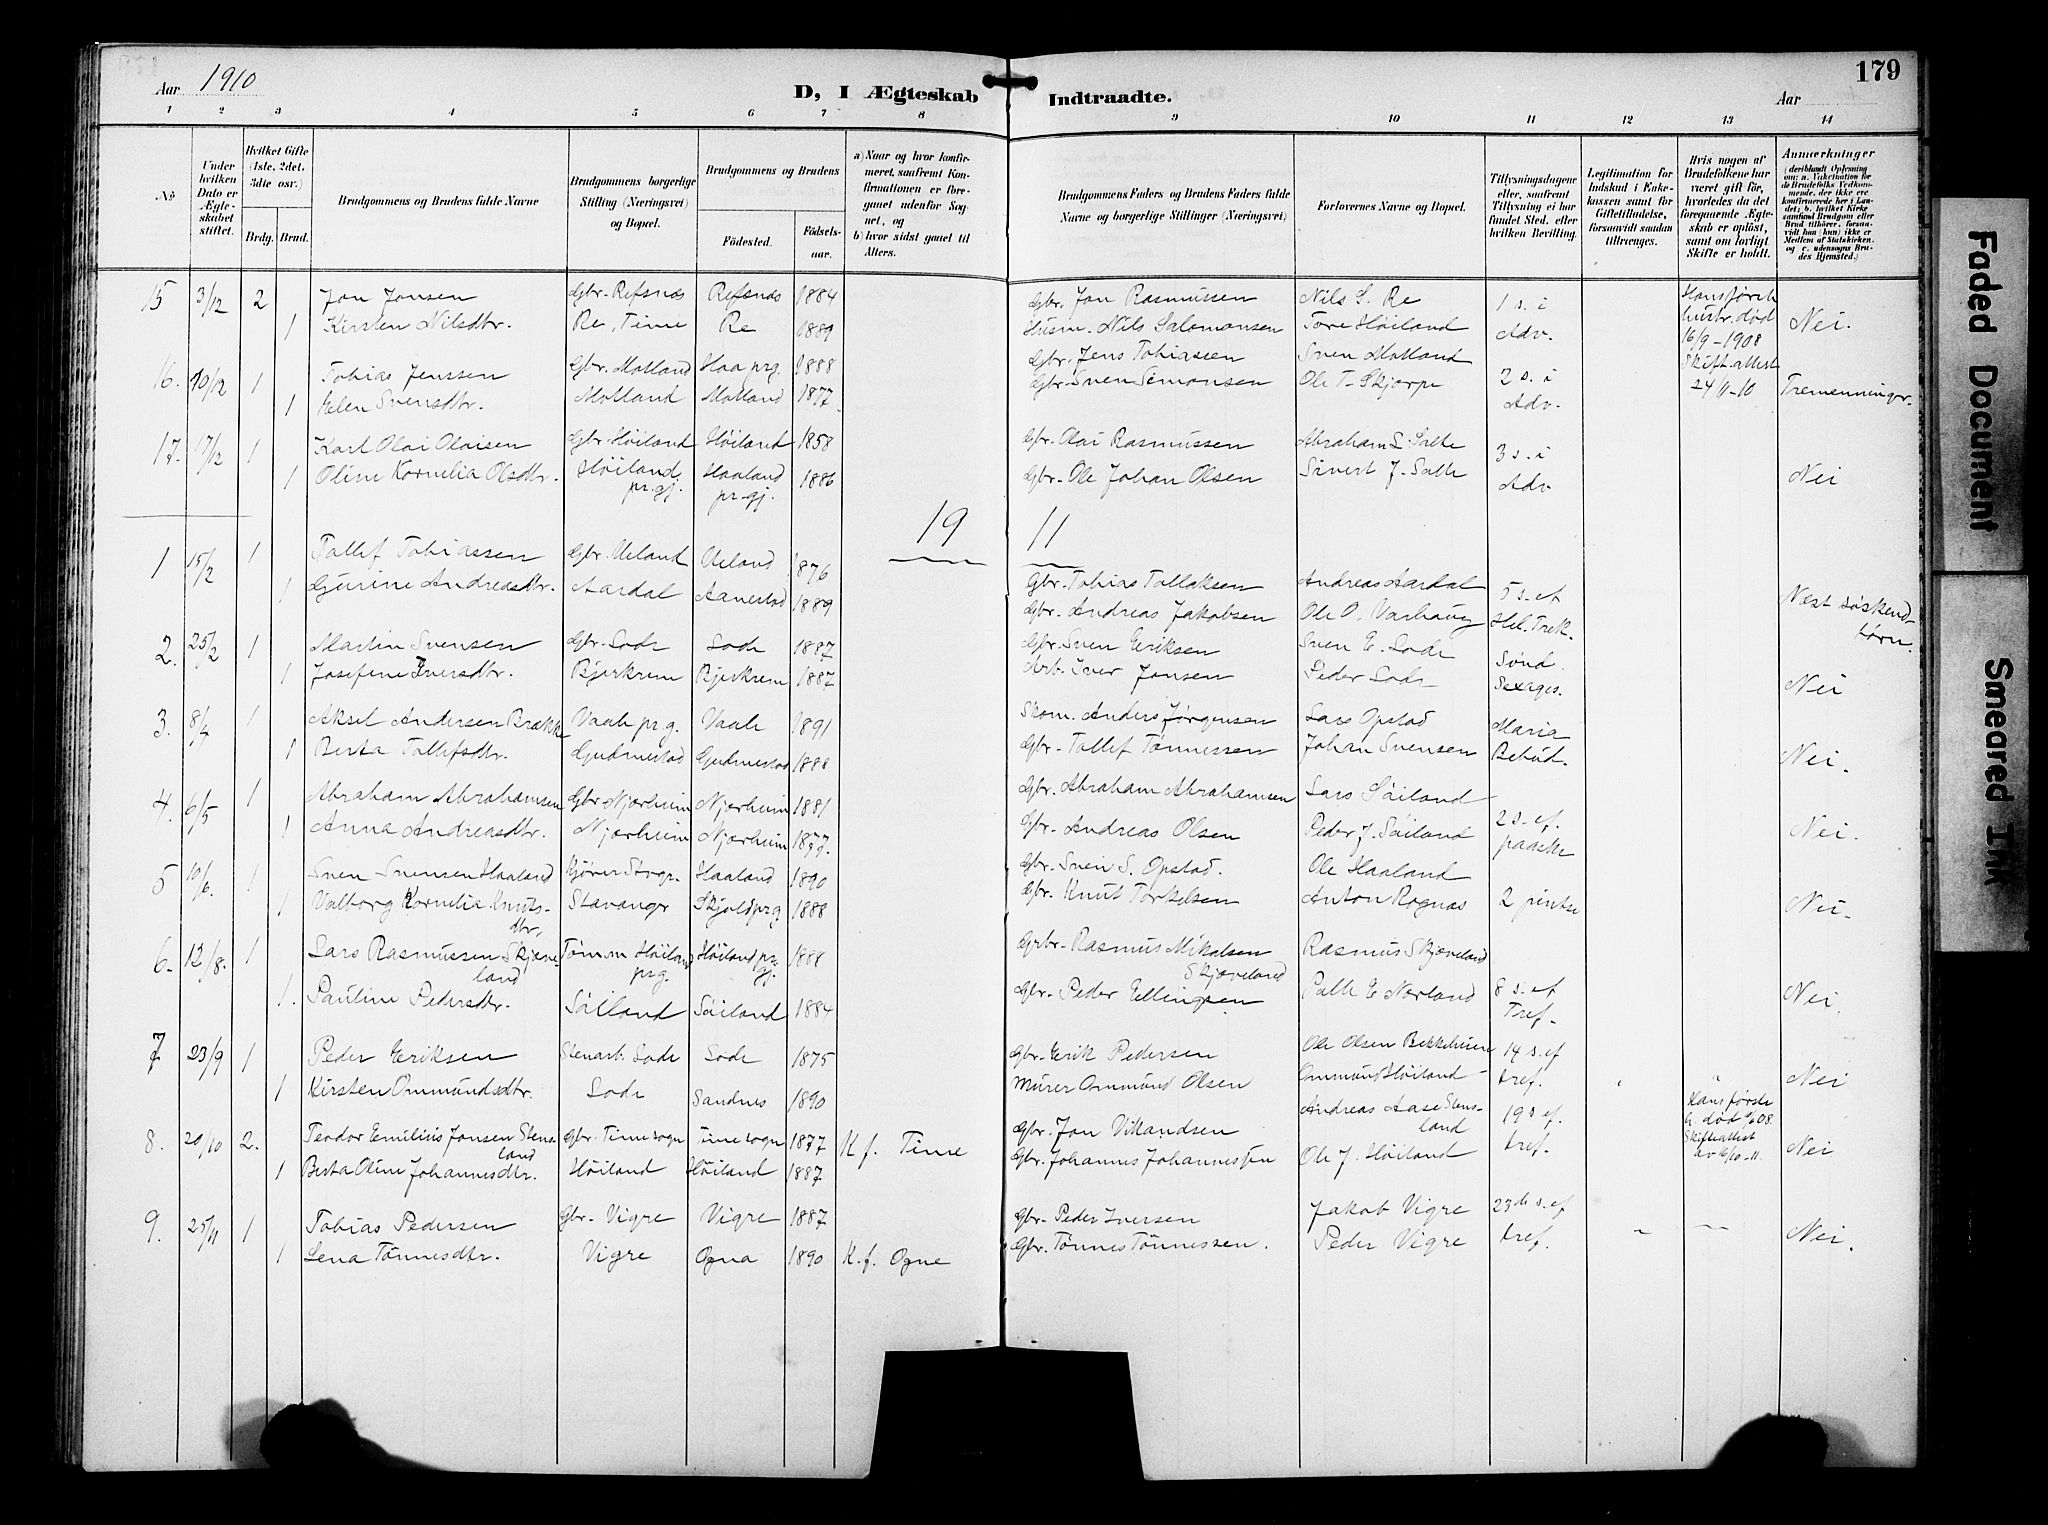 179
Aar 1910
D, I Ægteskab Indtraadte.
Aar
1 2 3 4 5 6 7 8 9 10 11 12 13 14
No
Under hvilken Dato er Ægteskabet stiftet.
Hvilket Gifte (1ste, 2det, 3die osv.)
Brdg. Brud.
Brudgommens og Brudens fulde Navne
Brudgommens borgerlige Stilling (Næringsvei) og Bopæl.
Brudgommens og Brudens
Födested. Födsels-aar.
a) Naar og hvor konfirmeret, saafremt Konfirmationen er foregaaet udenfor Sognet, og
b) hvor sidst gaaet til Alters.
Brudgommens Faders og Brudens Faders fulde Navne og borgerlige Stillinger (Næringsvei)
Forlovernes Navne og Bopæl.
Tillysningsdagene eller, saafremt Tillysning ei har fundet Sted, efter hvilken Bevilling.
Legitimation for Indskud i Enkekassen samt for Giftetilladelse, forsaavidt saadan tiltrænges.
Hvis nogen af Brudefolkene har været gift för, hvorledes da det foregaaende Ægteskab er oplöst, samt om lovligt Skifte er holdt.
Anmærkninger
(deriblandt Oplysning om: a. Vakcination for de Brudefolks Vedkommende, der ikke ere konfirmerede her i Landet; b. hvilket Kirkesamfund Brudgom eller Brud tilhörer, forsaavidt han (hun) ikke er Medlem af Statskirken, og c. udensogns Brudes Hjemsted.)
15 3/12 2 Jon Jonsen Gbr. Refsnes Refsnes 1884 Gbr. Jon Rasmussen Nils S. Re 1 s. i Adv. Hans første hustr. død 16/9-1908 Skift.attest 24/11-10 Nei.
1 Kirsten Nilsdtr. Re, Time Re 1889 Husm. Nils Salomonsen Tore Høiland
16. 10/12 1 Tobias Jenssen Gbr. Motland Haa prg. 1888 Gbr. Jens Tobiassen Sven Motland 2 s. i Adv. Tremenninger.
1 Elen Svensdtr. Motland Motland 1877. Gbr. Sven Simonsen Ole T. Skjorpe
17. 17/12 1 Karl Olai Olaisen Gbr. Høiland Høiland 1858 Gbr. Olai Rasmussen Abraham L. Salte 3 s. i Adv. Nei
1 Oline Kornelia Olsdtr. Høiland pr.gj. Haaland pr.gj. 1886 Gbr. Ole Johan Olsen Sivert J. Salte
19 11
1 15/2 1 Tollef Tobiassen Gbr. Ueland Ueland 1876 Gbr. Tobias Tollaksen Andreas Aardal 5 s. ef Hel. Trek. Næst søskend-børn.
1 Gurine Andreasdtr. Aardal Aanestad 1889 Gbr. Andreas Jakobsen Ole O. Varhaug
2. 25/2 1 Martin Svensen Gbr. Lode Lode 1887 Gbr. Sven Eriksen Sven E. Lode Sønd. Sexages. Nei
1 Josefine Iversdtr. Bjerkrem Bjerkrem 1887 Arb. Iver Jonsen Peder Lode
3. 8/4 1 Aksel Andersen Brække Vaale prg. Vaale 1891 Skom. Anders Jørgensen Lars Opstad Maria Bebud. Nei.
1 Berta Tollefsdtr. Gudmestad Gudmestad 1888 Gbr. Tollef Tønnessen Johan Svensen
4. 6/5 1 Abraham Abrahamsen Gbr. Njærheim Njærheim 1881 Gbr. Abraham Abrahamsen Lars Søiland 2 s. ef. paaske Nei.
1 Anna Andreasdtr. Njærheim Njærheim 1877. Gbr. Andreas Olsen Peder J. Søiland
5 10/6. 1 Sven Svensen Haaland Haaland 1890 Gbr. Sven S. Opstad. Ole Haaland 2 pintse Nei.
1 Valborg Kornelia Knuts-dtr. Stavanger Skjold prg 1888 Gbr. Knut Torkelsen Anton Rognas
6. 12/8. 1 Lars Rasmussen Skjæve-land Tømm Høiland prg. Høiland pr.gj. 1888 Grbr. Rasmus Mikalsen Skjæveland Rasmus Skjæveland 8 s. ef Tref. Nei.
1. Pauline Pedersdtr. Søiland Søiland 1884 Gbr. Peder Ellingsen Palle E Nærland
7 23/9 1 Peder Eriksen Stenarb. Lode Lode 1875 Gbr. Erik Pedersen Ole Olsen Bekkeheien 14 s. ef tref. Nei
1 Kirsten Ommundsdtr. Lode Sandnes 1890 Murer Ommund Olsen Ommund Høiland
8. 20/10 2. Teodor Emilius Jonsen Stens-land Gbr. Time sogn Time sogn 1877 K.f. Time Gbr. Jon Villandsen Andreas Aase Stens-land 19 s ef. tref. Hans første h. død 08. Skifteattest av 6/10-11. Nei
1 Berta Oline Johannesdtr. Høiland Høiland 1887 Gbr. Johannes Johannessen Ole J. Høiland
9. 25/11 1 Tobias Pedersen Gbr. Vigre Vigre 1887 Gbr. Peder Iversen Jakob Vigre 23de s. ef tref. Nei.
1 Lena Tønnesdtr. Vigre Ogna 1890 K.f. Ogne Gbr. Tønnes Tønnessen. Peder Vigre
Faded Document
Smeared Ink